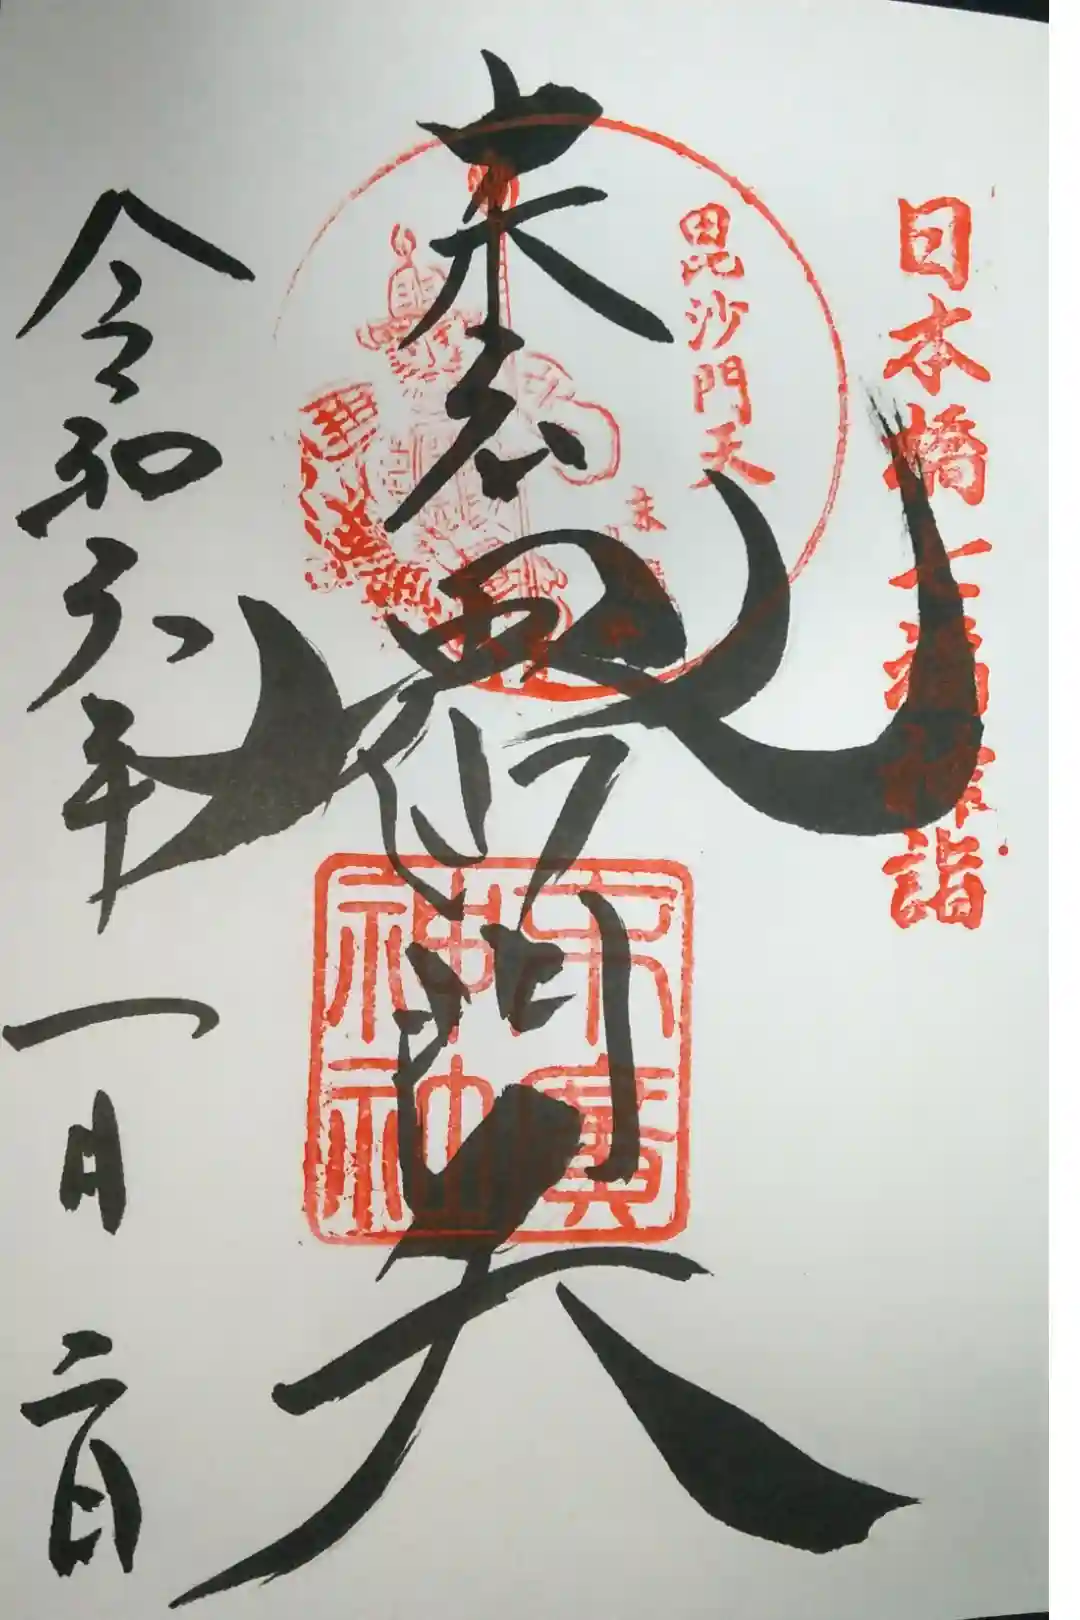 日本橋七福神詣
毘沙門天
奉拝
毘沙門天
末廣
神社
令和六年一月二日